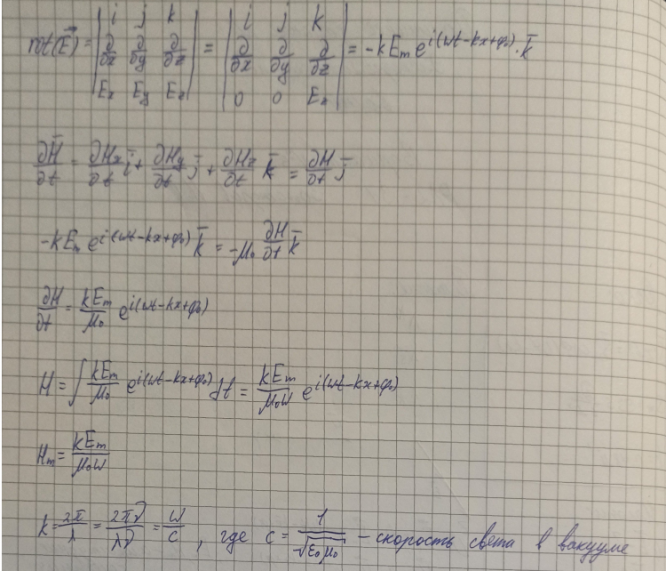 rot(E⃗) = | i j k ; ∂/∂x ∂/∂y ∂/∂z ; Eₓ E_y E_z | = | i j k ; ∂/∂x ∂/∂y ∂/∂z ; 0 0 E_z | = -kEₘ e^{i(ωt-kx+φ₀)} · k̄
∂H̄/∂t = ∂Hx/∂t i̅ + ∂Hy/∂t j̅ + ∂Hz/∂t k̅ = ∂H/∂t j̅
-kEₘ e^{i(ωt-kx+φ₀)} k̅ = -μ₀ ∂H/∂t k̅
∂H/∂t = kEₘ/μ₀ e^{i(ωt-kx+φ₀)}
H = ∫ kEₘ/μ₀ e^{i(ωt-kx+φ₀)} dt = kEₘ/μ₀ω e^{i(ωt-kx+φ₀)}
Hₘ = kEₘ/μ₀ω
k = 2π/λ = 2πν/λν = ω/c , где c = 1/√ε₀μ₀ - скорость света в вакууме